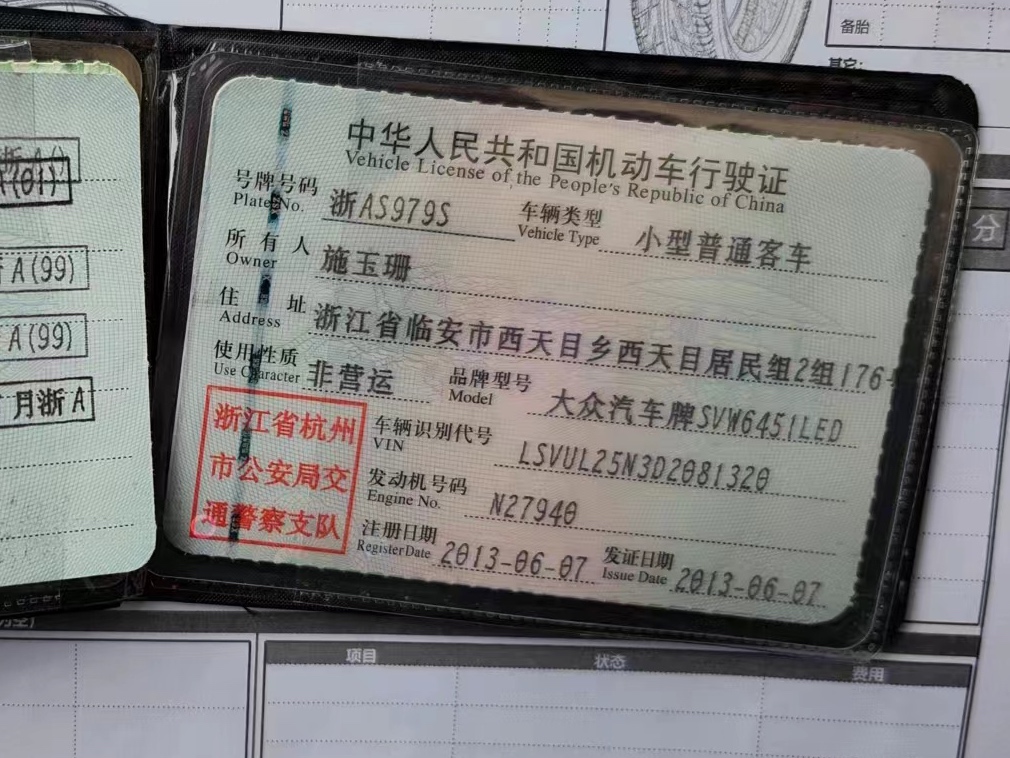 备胎
其它:
中华人民共和国机动车行驶证
Vehicle License of the People's Republic of China
号牌号码 浙AS979S 车辆类型 小型普通客车
Plate No. Vehicle Type
所有人 施玉珊
Owner
住址 浙江省临安市西天目乡西天目居民组2组176
Address
使用性质 非营运 品牌型号 大众汽车牌SVW6451LED
Use Character Model
浙江省杭州
市公安局交
通警察支队
车辆识别代号 LSVUL25N3D2081320
VIN
发动机号码 N27940
Engine No.
注册日期 2013-06-07 发证日期 2013-06-07
Register Date Issue Date
浙A()
(01)
A(99)
A(99)
月浙A
分
项目 状态 费用